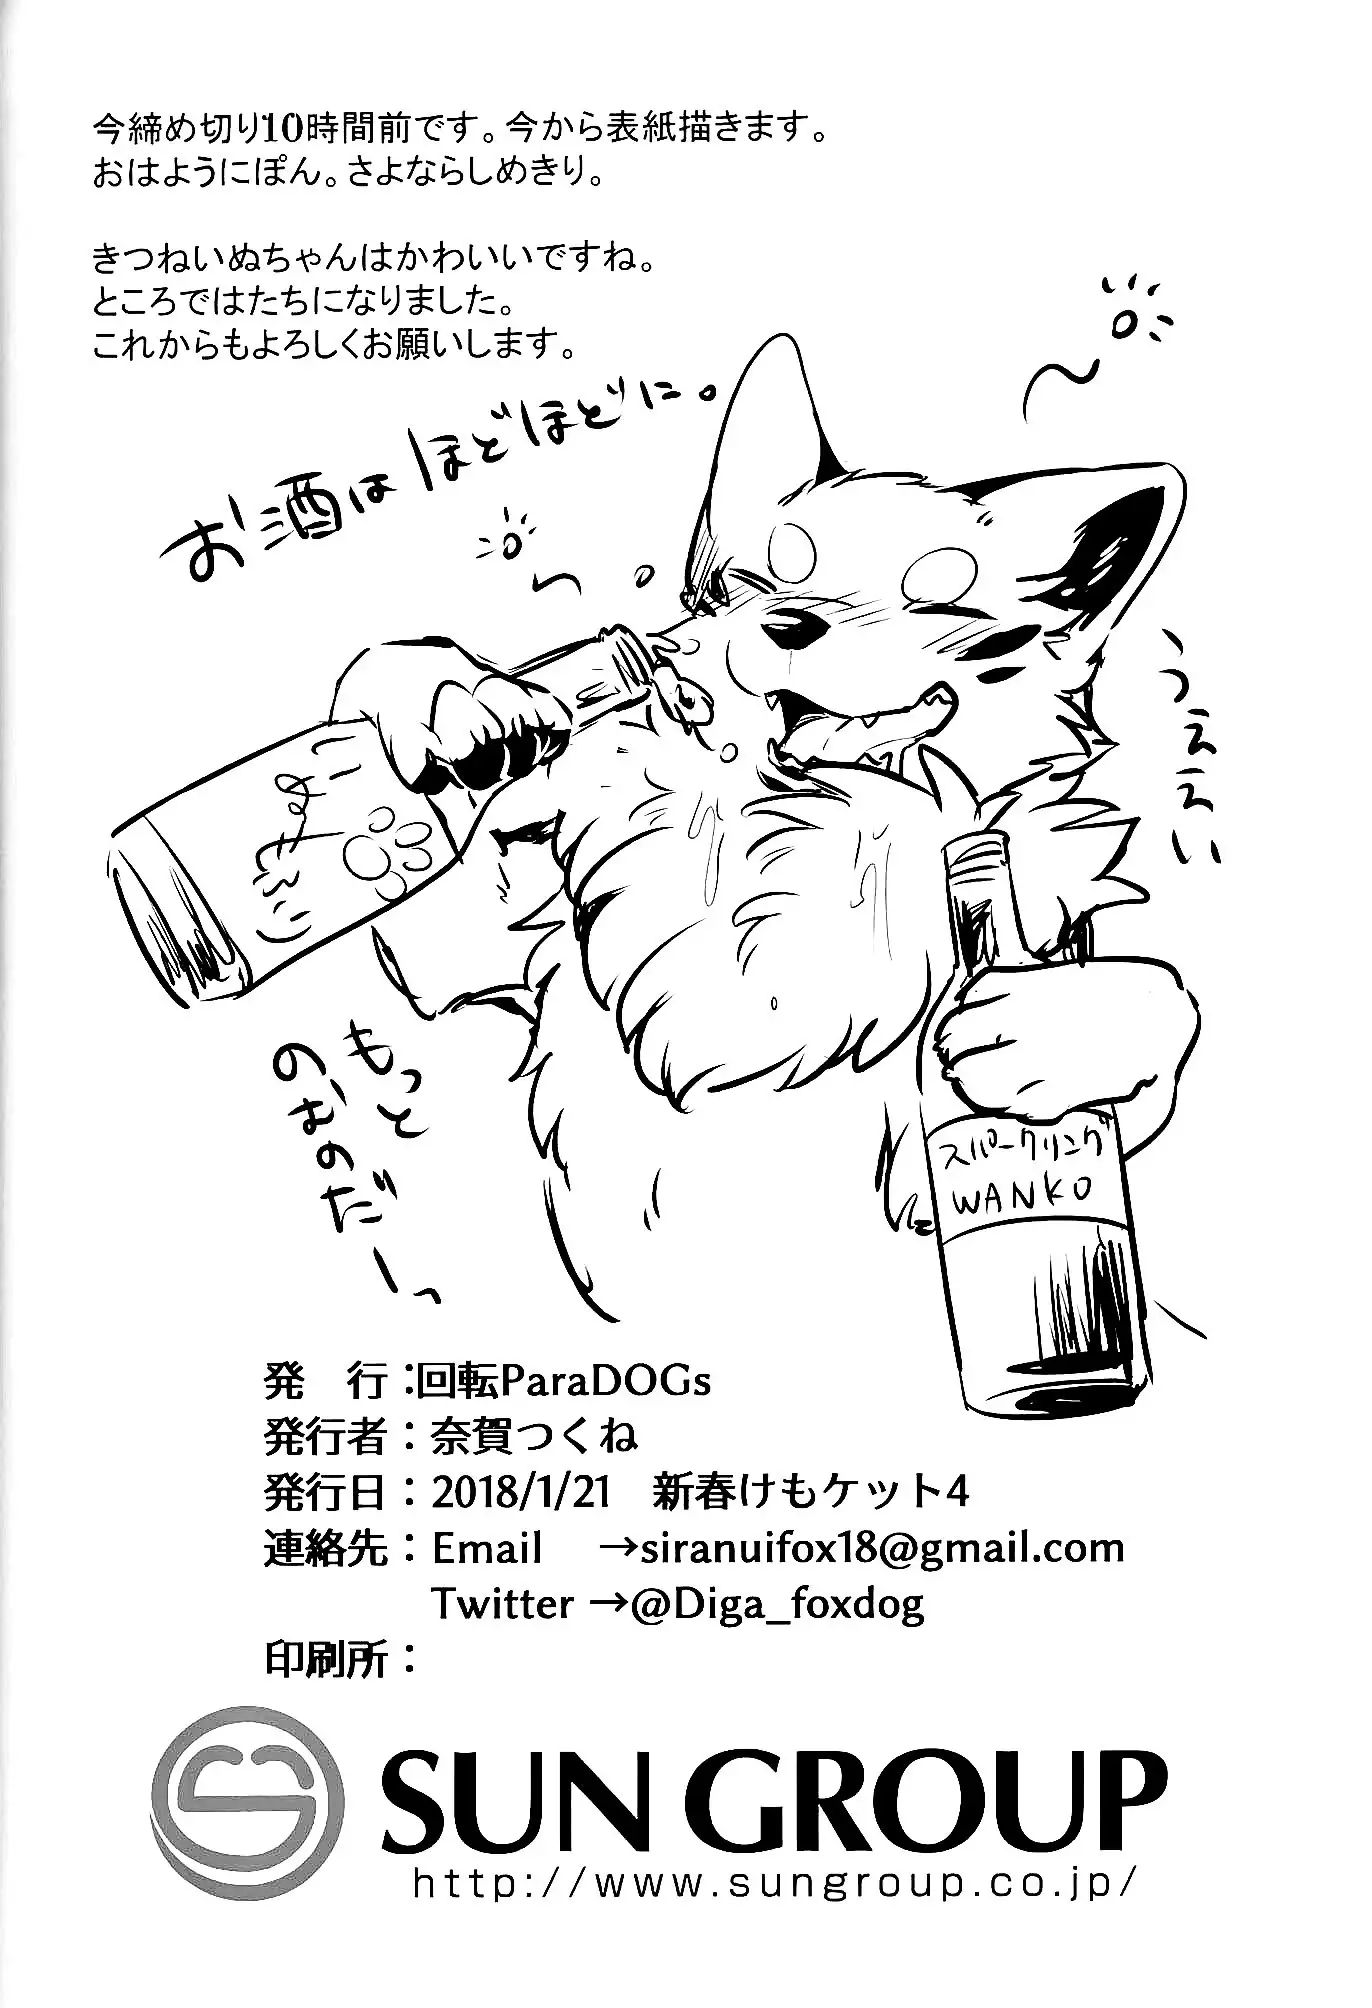 今締め切り10時間前です。今から表紙描きます。
おはようにぽん。さよならしめきり。
きつねいぬちゃんはかわいいですね。
ところではたちになりました。
これからもよろしくお願いします。
お酒はほどほどに。
うぇぇぇい
もっと
のむのだーっ
スパークリング
WANKO
発　行：回転ParaDOGs
発行者：奈賀つくね
発行日：2018/1/21　新春けもケット4
連絡先：Email　→siranuifox18@gmail.com
Twitter →@Diga_foxdog
印刷所：
SUN GROUP
http://www.sungroup.co.jp/